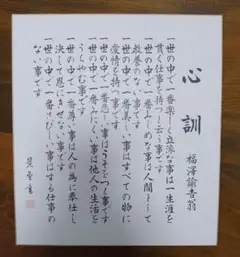 心訓
福澤諭吉翁
一世の中で一番楽しく立派な事は一生涯を
貫く仕事を持つと云う事です
一世の中で一番みじめな事は人間として
教養のない事です
一世の中で一番美しい事はすべての物に
愛情を持つ事です
一世の中で一番悲しい事はうそをつく事です
一世の中で一番みにくい事は他人の生活を
うらやむ事です
一世の中で一番尊い事は人の為に奉仕し
決して恩にきせない事です
一世の中で一番さびしい事はする仕事の
ない事です